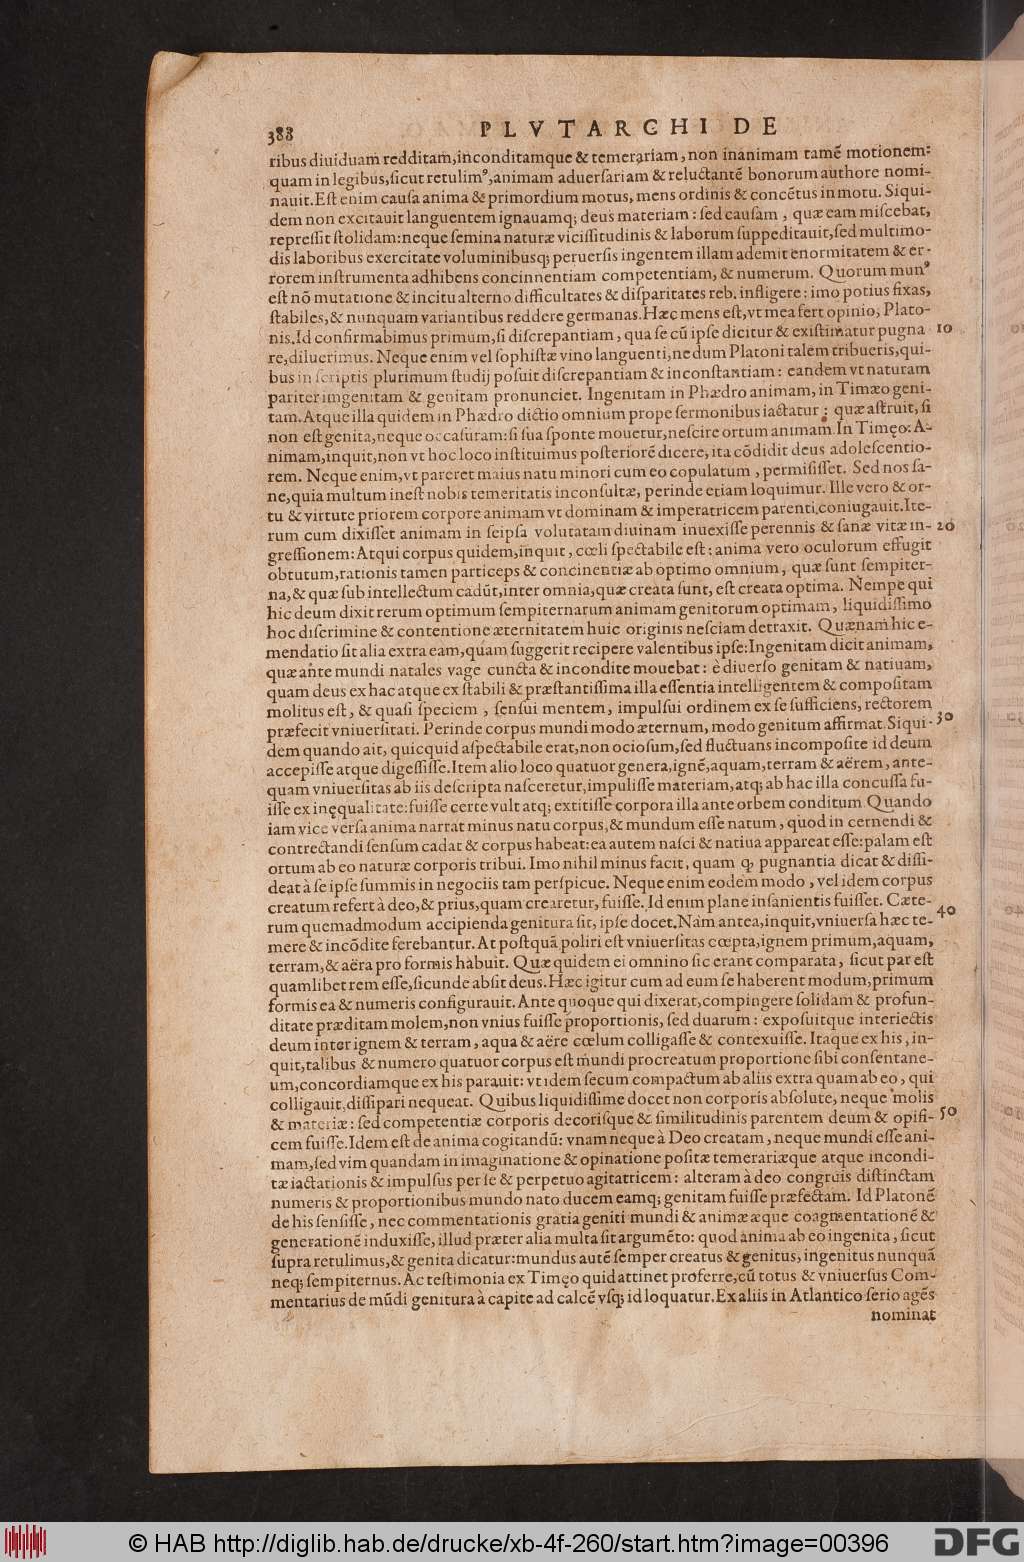 388 PLVTARCHI DE
ribus diuiduam redditam, inconditamque & temerariam, non inanimam tamē motionem:
quam in legibus, sicut retulimꝰ, animam aduersariam & reluctantē bonorum authore nomi-
nauit. Est enim causa anima & primordium motus, mens ordinis & concētus in motu. Siqui-
dem non excitauit languentem ignauamq; deus materiam: sed causam, quæ eam miscebat,
repressit stolidam: neque semina naturæ vicissitudinis & laborum suppeditauit, sed multimo-
dis laboribus exercitate voluminibusq; peruersis ingentem illam ademit enormitatem & er-
rorem instrumenta adhibens concinnentiam competentiam, & numerum. Quorum munꝰ
est nō mutatione & incitu alterno difficultates & disparitates reb. infligere: imo potius fixas,
stabiles, & nunquam variantibus reddere germanas. Hæc mens est, vt mea fert opinio, Plato-
nis. Id confirmabimus primum, si discrepantiam, qua se cū ipse dicitur & existimatur pugna 10
re, diluerimus. Neque enim vel sophistæ vino languenti, nedum Platoni talem tribueris, qui-
bus in scriptis plurimum studij posuit discrepantiam & inconstantiam: eandem vt naturam
pariter imgenitam & genitam pronunciet. Ingenitam in Phædro animam, in Timæo geni-
tam. Atque illa quidem in Phædro dictio omnium prope sermonibus iactatur; quæ astruit, si
non est genita, neque occasuram: si sua sponte mouetur, nescire ortum animam. In Timęo: A-
nimam, inquit, non vt hoc loco instituimus posteriorē dicere, ita cōdidit deus adolescentio-
rem. Neque enim, vt pareret maius natu minori cum eo copulatum, permisisset. Sed nos sa-
ne, quia multum inest nobis temeritatis inconsultæ, perinde etiam loquimur. Ille vero & or-
tu & virtute priorem corpore animam vt dominam & imperatricem parenti coniugauit. Ite-
rum cum dixisset animam in seipsa volutatam diuinam inuexisse perennis & sanæ vitæ in- 20
gressionem: Atqui corpus quidem, inquit, cœli spectabile est: anima vero oculorum effugit
obtutum, rationis tamen particeps & concinentiæ ab optimo omnium, quæ sunt sempiter-
na, & quæ sub intellectum cadūt, inter omnia, quæ creata sunt, est creata optima. Nempe qui
hic deum dixit rerum optimum sempiternarum animam genitorum optimam, liquidissimo
hoc discrimine & contentione æternitatem huic originis nesciam detraxit. Quænam hic e-
mendatio sit alia extra eam, quám suggerit recipere valentibus ipse: Ingenitam dicit animam,
quæ ante mundi natales vage cuncta & incondite mouebat: è diuerso genitam & natiuam,
quam deus ex hac atque ex stabili & præstantissima illa essentia intelligentem & compositam
molitus est, & quasi speciem, sensui mentem, impulsui ordinem ex se sufficiens, rectorem
præfecit vniuersitati. Perinde corpus mundi modo æternum, modo genitum affirmat. Siqui- 30
dem quando ait, quicquid aspectabile erat, non ociosum, sed fluctuans incomposite id deum
accepisse atque digessisse. Item alio loco quatuor genera, ignē, aquam, terram & aërem, ante-
quam vniuersitas ab iis descripta nasceretur, impulisse materiam, atq; ab hac illa concussa fu-
isse ex inęqualitate: fuisse certe vult atq; extitisse corpora illa ante orbem conditum. Quando
iam vice versa anima narrat minus natu corpus, & mundum esse natum, quod in cernendi &
contrectandi sensum cadat & corpus habeat: ea autem nasci & natiua appareat esse: palam est
ortum ab eo naturæ corporis tribui. Imo nihil minus facit, quam ꝙ pugnantia dicat & dissi-
deat à se ipse summis in negociis tam perspicue. Neque enim eodem modo, vel idem corpus
creatum refert à deo, & prius, quam crearetur, fuisse. Id enim plane insanientis fuisset. Cæte-
rum quemadmodum accipienda genitura sit, ipse docet. Nam antea, inquit, vniuersa hæc te- 40
mere & incōdite ferebantur. At postquā poliri est vniuersitas cœpta, ignem primum, aquam,
terram, & aëra pro formis habuit. Quæ quidem ei omnino sic erant comparata, sicut par est
quamlibet rem esse, sicunde absit deus. Hæc igitur cum ad eum se haberent modum, primum
formis ea & numeris configurauit. Ante quoque qui dixerat, compingere solidam & profun-
ditate præditam molem, non vnius fuisse proportionis, sed duarum: exposuitque interiectis
deum inter ignem & terram, aqua & aëre cœlum colligasse & contexuisse. Itaque ex his, in-
quit, talibus & numero quatuor corpus est mundi procreatum proportione sibi consentane-
um, concordiamque ex his parauit: vt idem secum compactum ab aliis extra quam ab eo, qui
colligauit, dissipari nequeat. Quibus liquidissime docet non corporis absolute, neque molis
& materiæ: sed competentiæ corporis decorisque & similitudinis parentem deum & opifi- 50
cem fuisse. Idem est de anima cogitandū: vnam neque à Deo creatam, neque mundi esse ani-
mam, sed vim quandam in imaginatione & opinatione positæ temerariæque atque incondi-
tæ iactationis & impulsus per se & perpetuo agitatricem: alteram à deo congruis distinctam
numeris & proportionibus mundo nato ducem eamq; genitam fuisse præfectam. Id Platonē
de his sensisse, nec commentationis gratia geniti mundi & animæ æque coagmentationē &
generationē induxisse, illud præter alia multa sit argumēto: quod anima ab eo ingenita, sicut
supra retulimus, & genita dicatur: mundus autē semper creatus & genitus, ingenitus nunquā
neq; sempiternus. Ac testimonia ex Timęo quid attinet proferre, cū totus & vniuersus Com-
mentarius de mūdi genitura à capite ad calcē vsq; id loquatur. Ex aliis in Atlantico serio agēs
nominat
© HAB http://diglib.hab.de/drucke/xb-4f-260/start.htm?image=00396 DFG